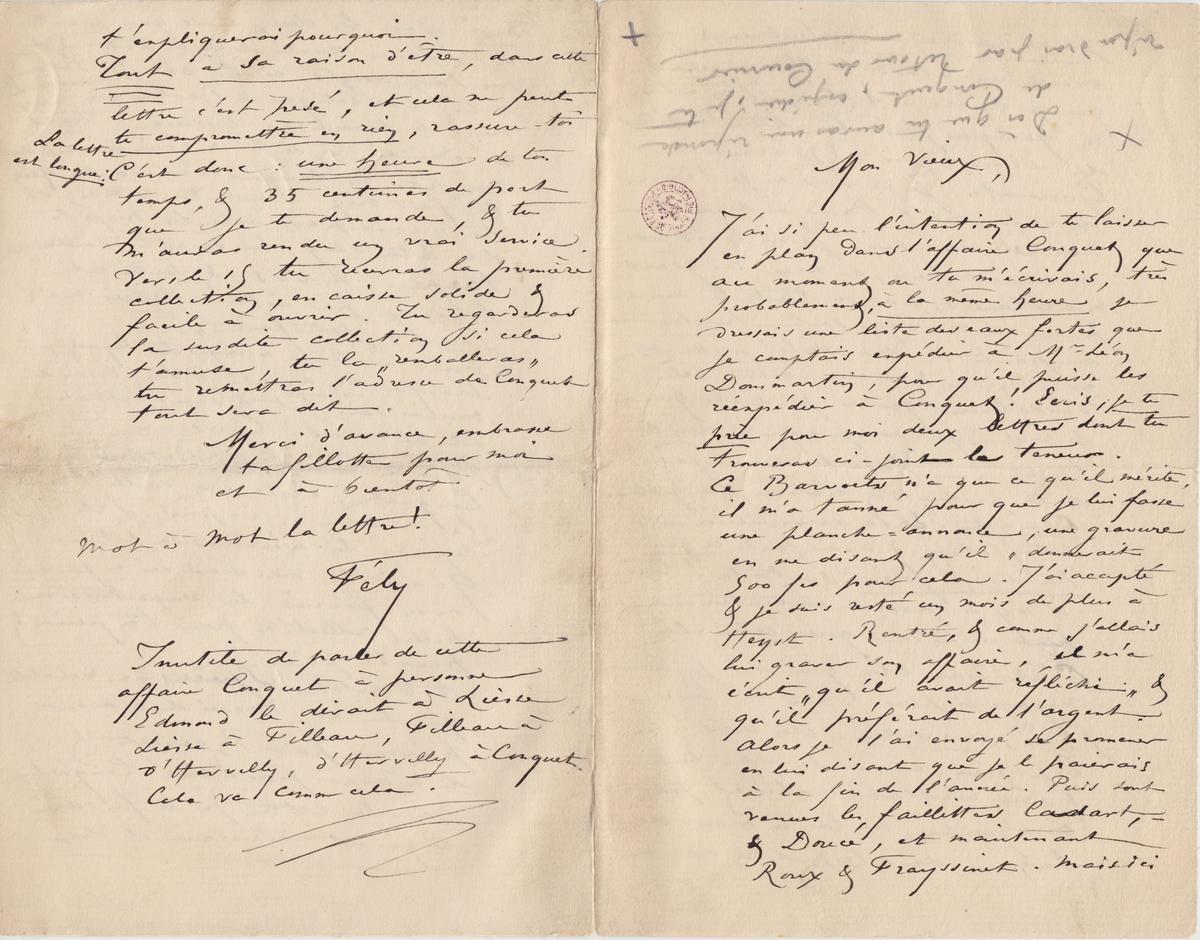 Mon Vieux,
J'ai si peu l'intention de te laisser
en plan dans l'affaire Conquet que
au moment où tu m'écrivais, très
probablement, à la même heure je
dressais une liste des eaux fortes que
je comptais expédier à Mr Léon
Dommartin, pour qu'il puisse les
réexpédier à Conquet ! Ecris, je te
prie pour moi deux lettres dont tu
trouveras ci-joint la teneur.
Ce Barvoets n'a que ce qu'il mérite,
il m'a tanné pour que je lui fasse
une planche=annonce, une gravure
en me disant qu'il "donnerait
500 frs pour cela. J'ai accepté
& je suis resté un mois de plus à
Heyst. Rentré, & comme j'allais
lui graver son affaire, il m'a
écrit "qu'il avait réfléchi" &
qu'il préférait de l'argent.
Alors je l'ai envoyé se promener
en lui disant que je le paierais
à la fin de l'année. Puis sont
venues les faillites Cadart,
& Doucé, et maintenant
Roux & Frayssinet. Mais ici
t'expliquerai pourquoi.
Tout a sa raison d'être, dans cette
lettre c'est pesé, et cela ne peut
te compromettre en rien, rassure-toi
La lettre
est longue.
C'est donc : une heure de ton
temps, & 35 centimes de port
que je te demande, & tu
m'auras rendu un vrai service.
Vers le 15 tu recevras la première
collection, en caisse solide &
facile à ouvrir. Tu regarderas
la susdite collection si cela
t'amuse, tu la "remballeras"
tu remettras l'adresse de Conquet
tout sera dit.
Merci d'avance, embrasse
ta fillotte pour moi
et à bientôt
Mot à mot la lettre !
Fély
Inutile de parler de cette
affaire Conquet à personne
Edmond le dirait à Liesse
Liesse à Filleau, Filleau à
d'Hervilly, d'Hervilly à Conquet.
Cela va comme cela.
Dès que tu auras une réponse
de Conquet, expédie, je te
répondrai par retour du Courrier.